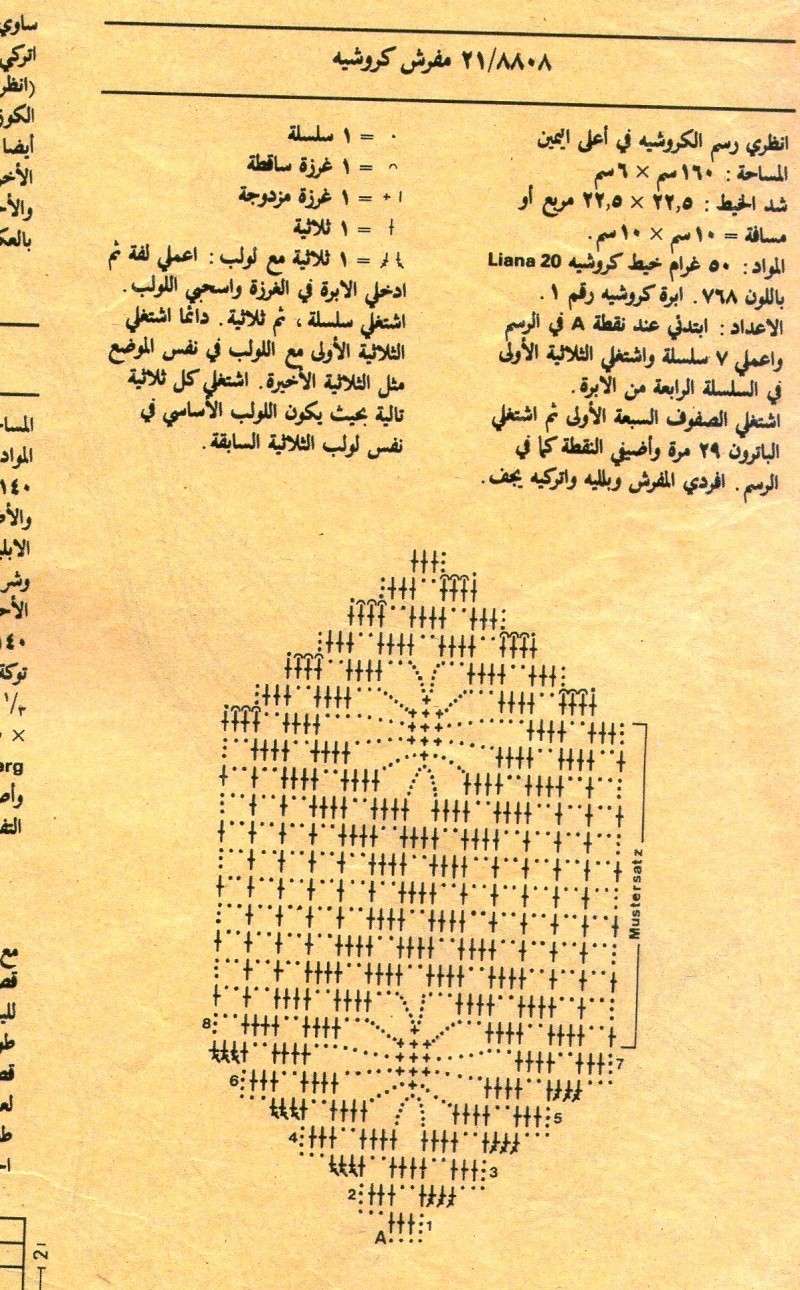 ٢١/٨٨٠٨ مفرش كروشيه
انظري رسم الكروشيه في أعلى اليمين
المساحة : ١٦٠ سم × ٦ سم
شد الخيط : ٢٢,٥ × ٢٢,٥ مربع أو
مسافة = ١٠ سم × ١٠ سم.
المواد : ٥٠ غرام خيط كروشيه Liana 20
باللون ٧٦٨. ابرة كروشيه رقم ١.
الاعداد : ابتدئي عند نقطة A في الرسم
واعملي ٧ سلسلة واشتغلي الثلاثية الأولى
في السلسلة الرابعة من الابرة.
اشتغلي الصفوف السبعة الأولى ثم اشتغلي
الباترون ٢٩ مرة وأضيفي النقطة كما في
الرسم. افردي المفرش وبلليه واتركيه يجف.
= ١ سلسلة
= ١ غرزة ساقطة
= ١ غرزة مزدوجة
= ١ ثلاثية
= ١ ثلاثية مع لولب : اعملي لفة ثم
ادخلي الابرة في الغرزة واسحبي اللولب.
اشتغلي سلسلة ، ثم ثلاثية. دائما اشتغلي
الثلاثية الأولى مع اللولب في نفس الموضع
مثل الثلاثية الأخيرة. اشتغلي كل ثلاثية
تالية بحيث يكون اللولب الأساسي في
نفس لولب الثلاثية السابقة.
Mustersatz
8
7
6
5
4
3
2
1
A
ساوي
اتركي
(انظر
الكوز
أيضا
والأ
المواد
١٤٠
الأ
توكة
×
مع
2